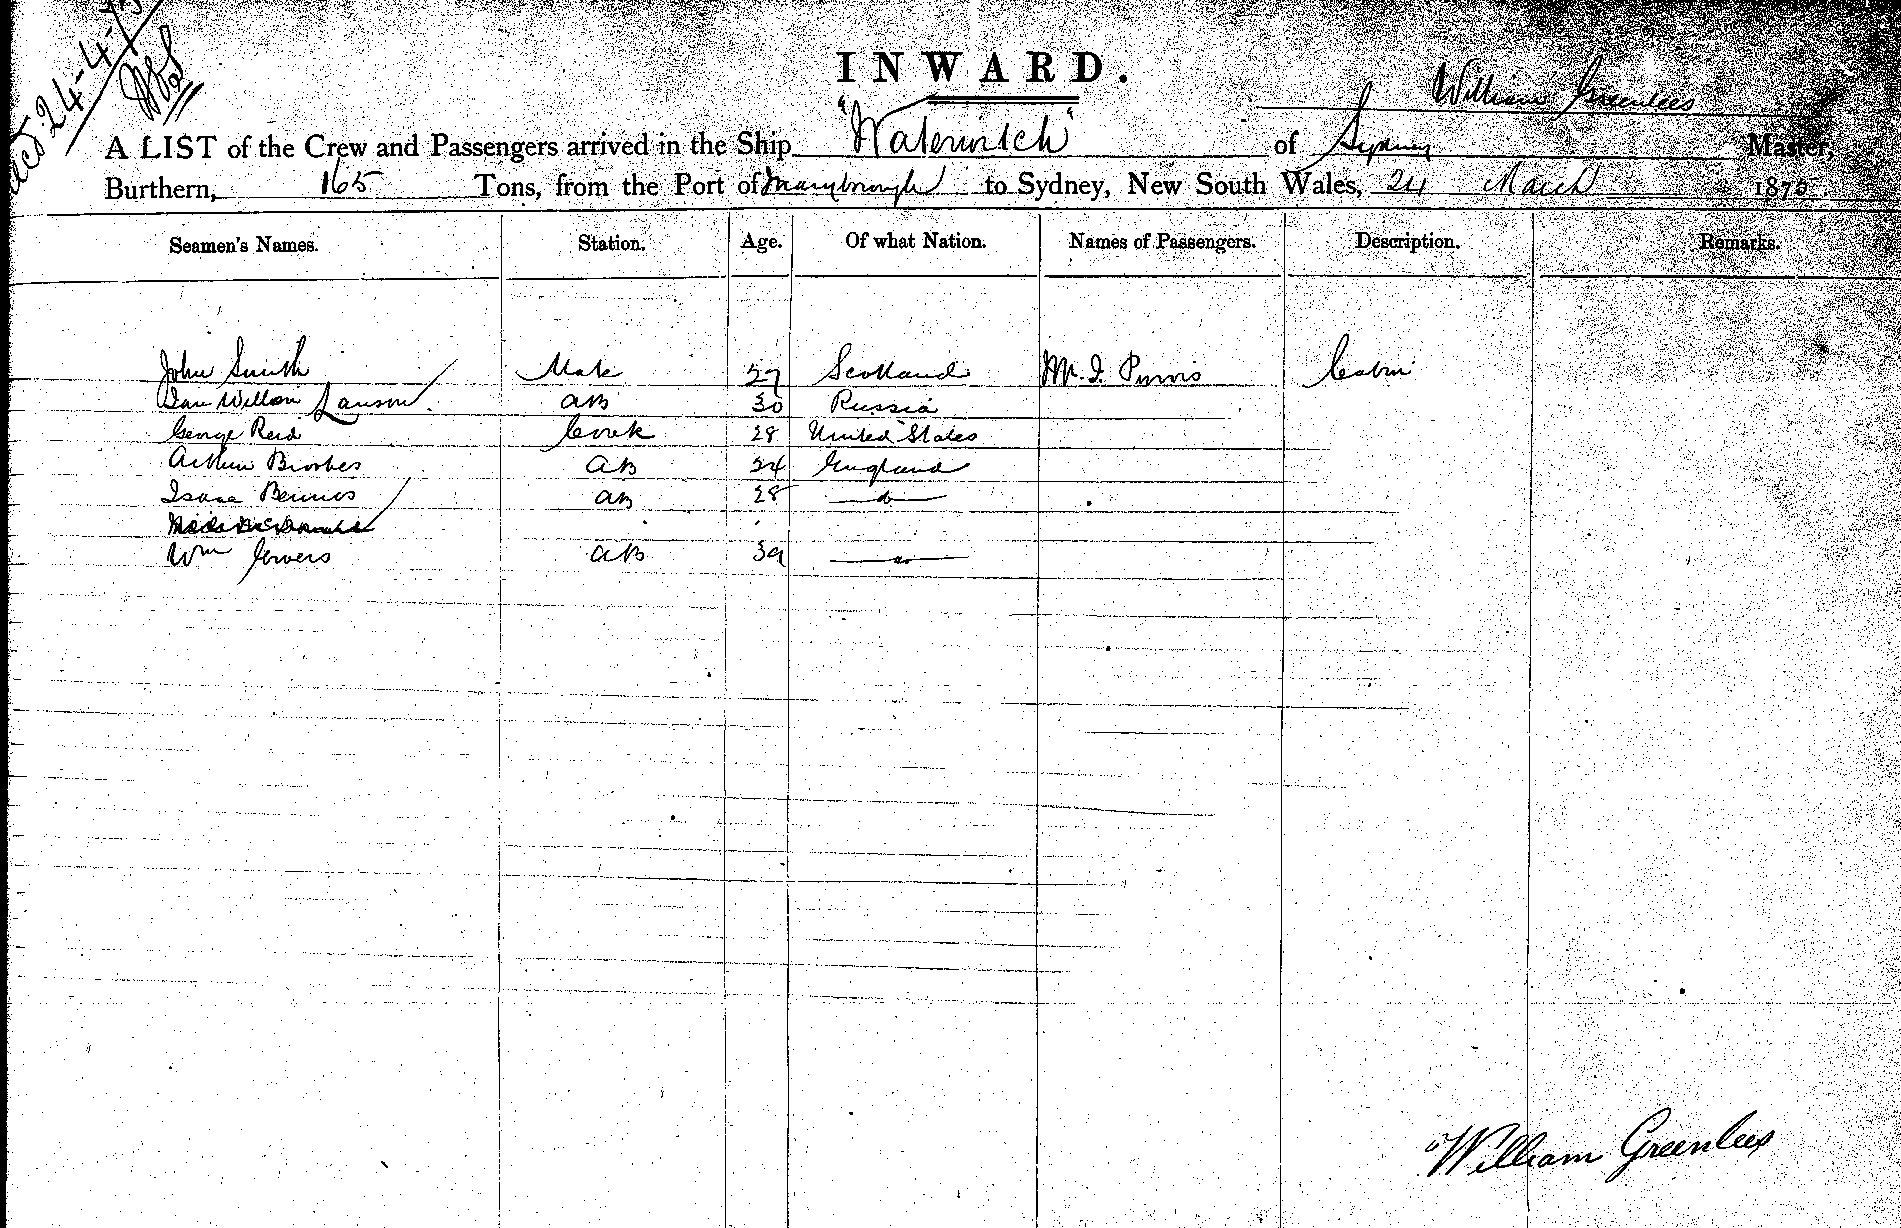 24-4-75
INWARD.
William Greenlees
A LIST of the Crew and Passengers arrived in the Ship "Waterwitch" of Sydney Master,
Burthern, 165 Tons, from the Port of Maryborough to Sydney, New South Wales, 24 March 1875.
Seamen's Names. Station. Age. Of what Nation. Names of Passengers. Description. Remarks.
John Smith Mate 27 Scotland Mr. I. Purvis Cabin
William Lawson AB 30 Russia
George Reid Cook 28 United States
Arthur AB 24 England
Isaac AB 28 do
Wm Gowers AB 39 do
William Greenlees